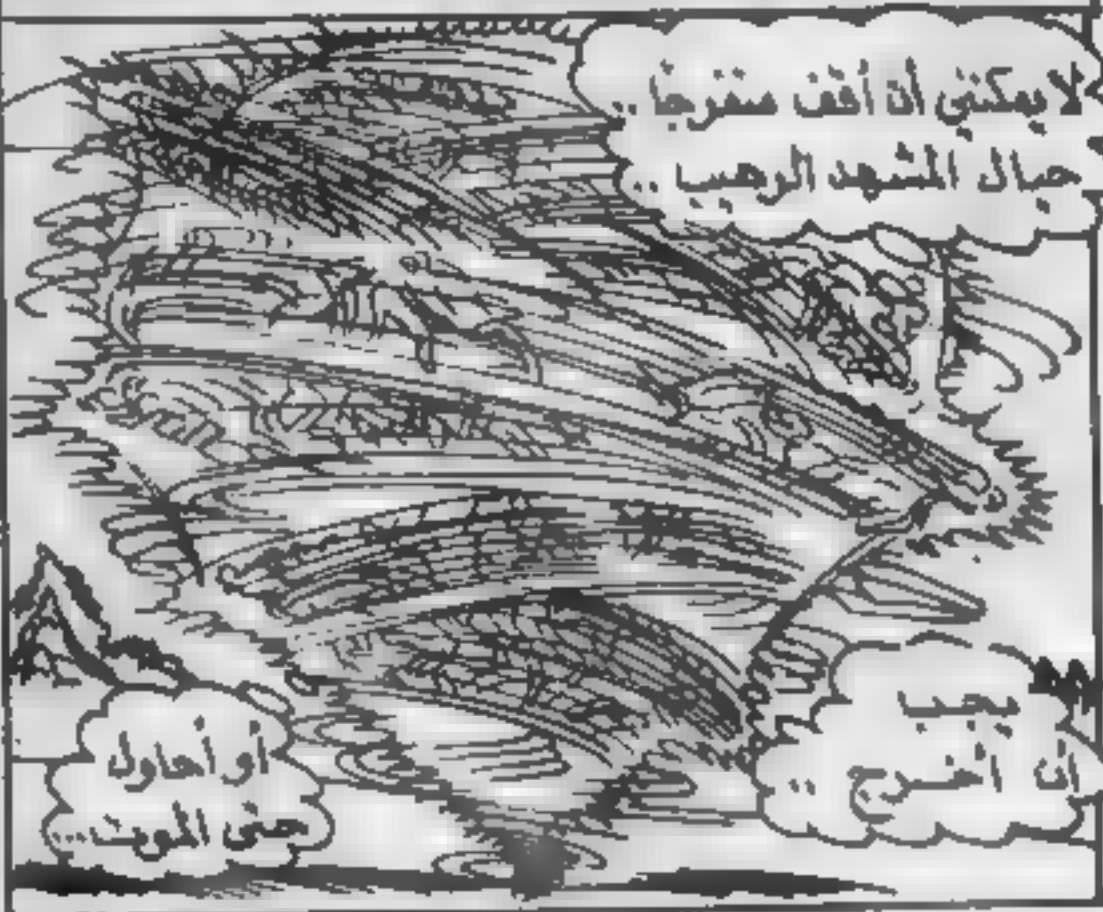 لا يمكنني أن أقف متفرجاً ..
حيال المشهد الرهيب ..
يجب
أن أخرج ..
أو أحاول
حتى الموت ...